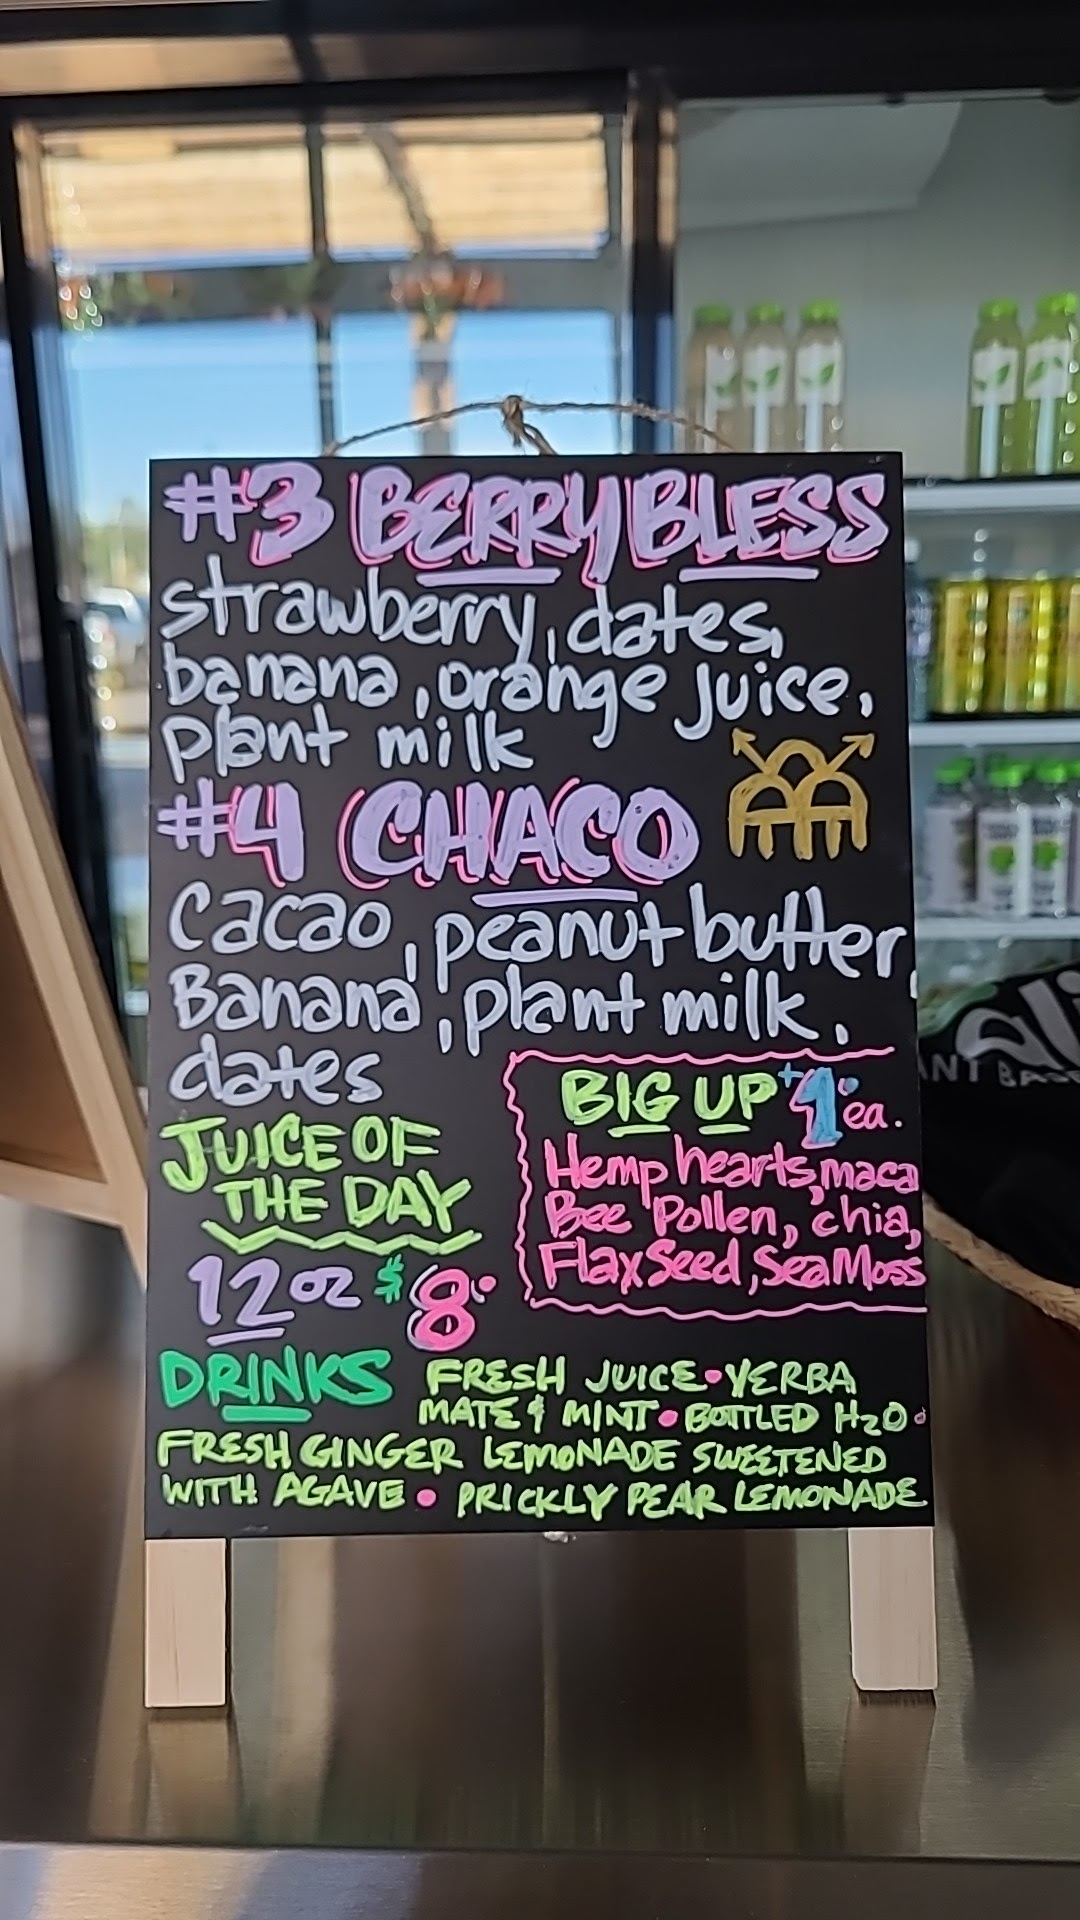 #3 BERRY BLESS
strawberry, dates,
banana, orange juice,
plant milk
#4 CHACO
Cacao, peanut butter,
Banana, plant milk,
dates
JUICE OF
THE DAY
12 oz $8.
BIG UP +1. ea.
Hemp hearts, maca
Bee Pollen, chia,
Flax Seed, Sea Moss
DRINKS FRESH JUICE • YERBA
MATE & MINT • BOTTLED H2O •
FRESH GINGER LEMONADE SWEETENED
WITH AGAVE • PRICKLY PEAR LEMONADE